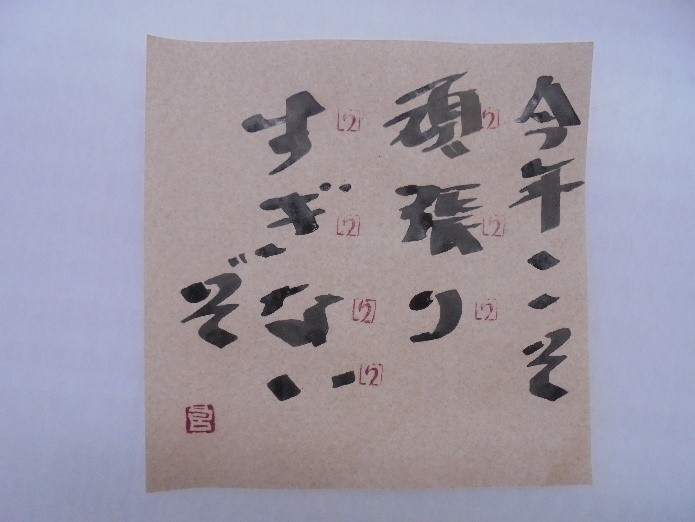 今年こそ
頑張り
すぎない
ぞ